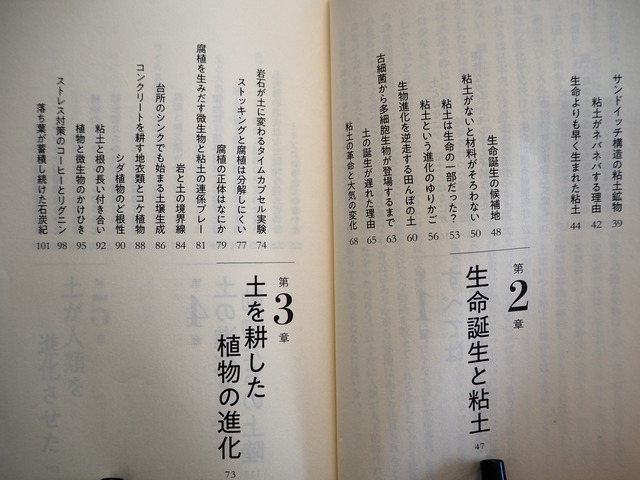 サンドイッチ構造の粘土鉱物 39
粘土がネバネバする理由 42
生命よりも早く生まれた粘土 44
第2章
生命誕生と粘土 47
生命誕生の候補地 48
粘土がないと材料がそろわない 50
粘土は生命の一部だった? 53
粘土という進化のゆりかご 56
生物進化を逆走する田んぼの土 60
古細菌から多細胞生物が登場するまで 63
土の誕生が遅れた理由 65
粘土の革命と大気の変化 68
第3章
土を耕した
植物の進化 73
岩石が土に変わるタイムカプセル実験 74
ストッキングと腐植は分解しにくい 77
腐植の正体はなにか 79
腐植を生みだす微生物と粘土の連係プレー 81
岩と土の境界線 84
台所のシンクでも始まる土壌生成 86
コンクリートを耕す地衣類とコケ植物 88
シダ植物のど根性 90
粘土と根の長い付き合い 92
植物と微生物のかけひき 95
ストレス対策のコーヒーとリグニン 98
落ち葉が蓄積し続けた石炭紀 101